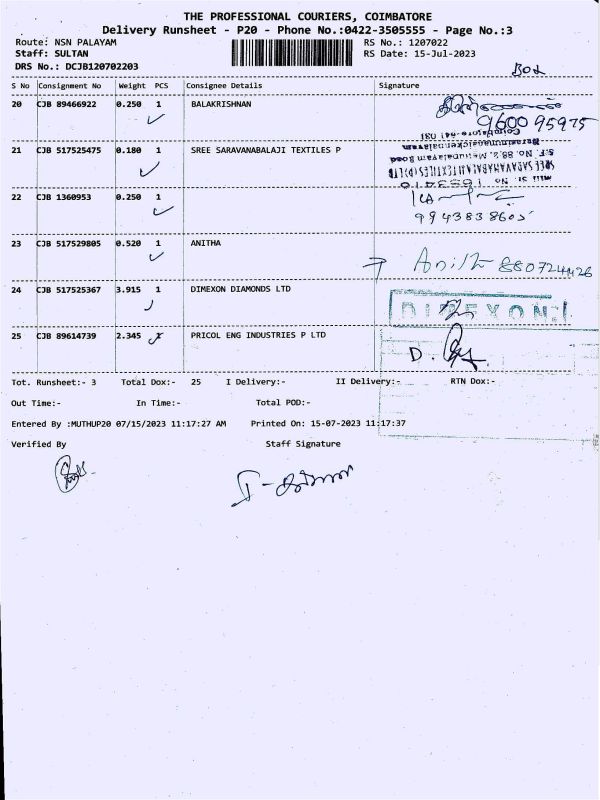 THE PROFESSIONAL COURIERS, COIMBATORE
Delivery Runsheet - P20 - Phone No.:0422-3505555 - Page No.:3
Route: NSN PALAYAM RS No.: 1207022
Staff: SULTAN RS Date: 15-Jul-2023
DRS No.: DCJB120702203
S No Consignment No Weight PCS Consignee Details Signature
20 CJB 89466922 0.250 1 BALAKRISHNAN
9600 95975
21 CJB 517525475 0.180 1 SREE SARAVANABALAJI TEXTILES P
22 CJB 1360953 0.250 1
99438 38605
23 CJB 517529805 0.520 1 ANITHA
24 CJB 517525367 3.915 1 DIMEXON DIAMONDS LTD DIMEXON
25 CJB 89614739 2.345 1 PRICOL ENG INDUSTRIES P LTD
Tot. Runsheet:- 3 Total Dox:- 25 I Delivery:- II Delivery:- RTN Dox:-
Out Time:- In Time:- Total POD:-
Entered By :MUTHUP20 07/15/2023 11:17:27 AM Printed On: 15-07-2023 11:17:37
Verified By Staff Signature